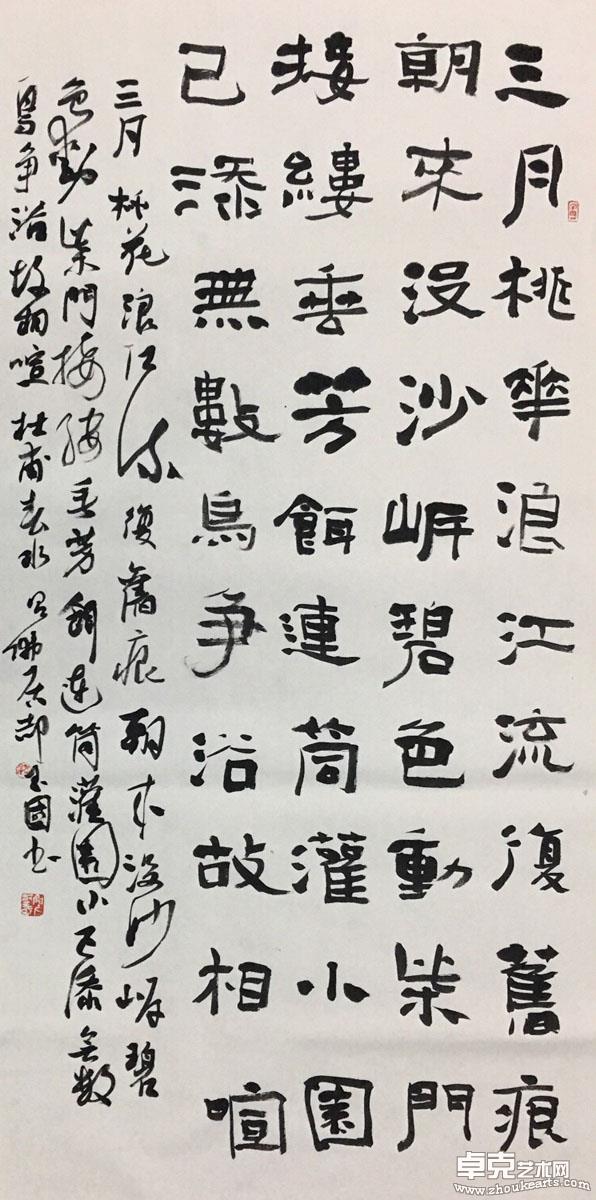 三月桃華浪江流復舊痕
朝來沒沙岸碧色動柴門
接縷垂芳餌連筒灌小園
已添無數鳥爭浴故相喧
三月桃花浪江流復舊痕朝來沒沙岸碧
色動柴門接縷垂芳餌連筒灌園小已添無數
鳥爭浴故相喧 杜甫春水 佛居 玉國書
卓克艺术网
www.zhoukearts.com